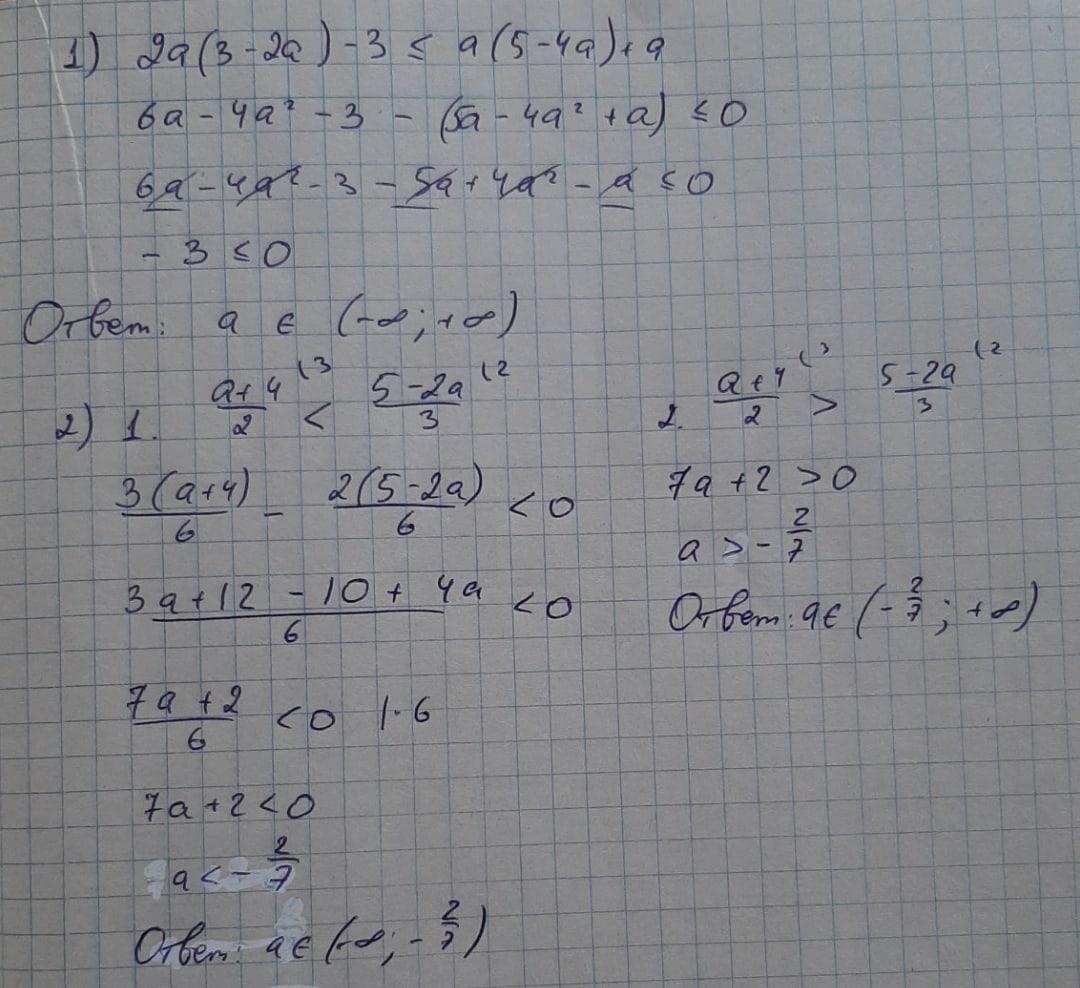 1) 2a(3-2a)-3 ≤ a(5-4a)+a
6a - 4a² - 3 - (5a - 4a² + a) ≤ 0
6a - 4a² - 3 - 5a + 4a² - a ≤ 0
- 3 ≤ 0
Ответ: a ∈ (-∞; +∞)
2) 1. (a+4)/2 (3 < (5-2a)/3 (2
3(a+4)/6 - 2(5-2a)/6 < 0
(3a+12-10+4a)/6 < 0
(7a+2)/6 < 0 |·6
7a+2<0
a < - 2/7
Ответ: a∈ (-∞; - 2/7)
2. (a+4)/2 (3 > (5-2a)/3 (2
7a+2 >0
a > - 2/7
Ответ: a∈ (- 2/7; +∞)